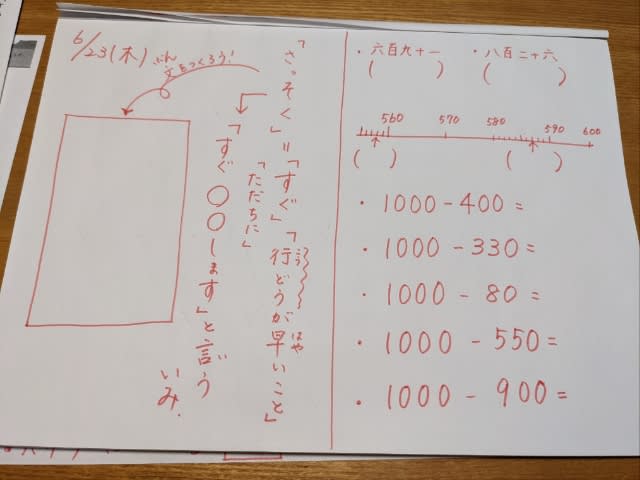 6/23(木)
ぶん
文をつくろう!
「さっそく」=「すぐ」「行どうが早いこと」
こう
はや
「ただちに」
「すぐ〇〇します」と言う
い
いみ.
・六百九十一 ・八百二十六
( ) ( )
560 570 580 590 600
( ) ( )
・1000-400=
・1000-330=
・1000-80=
・1000-550=
・1000-900=